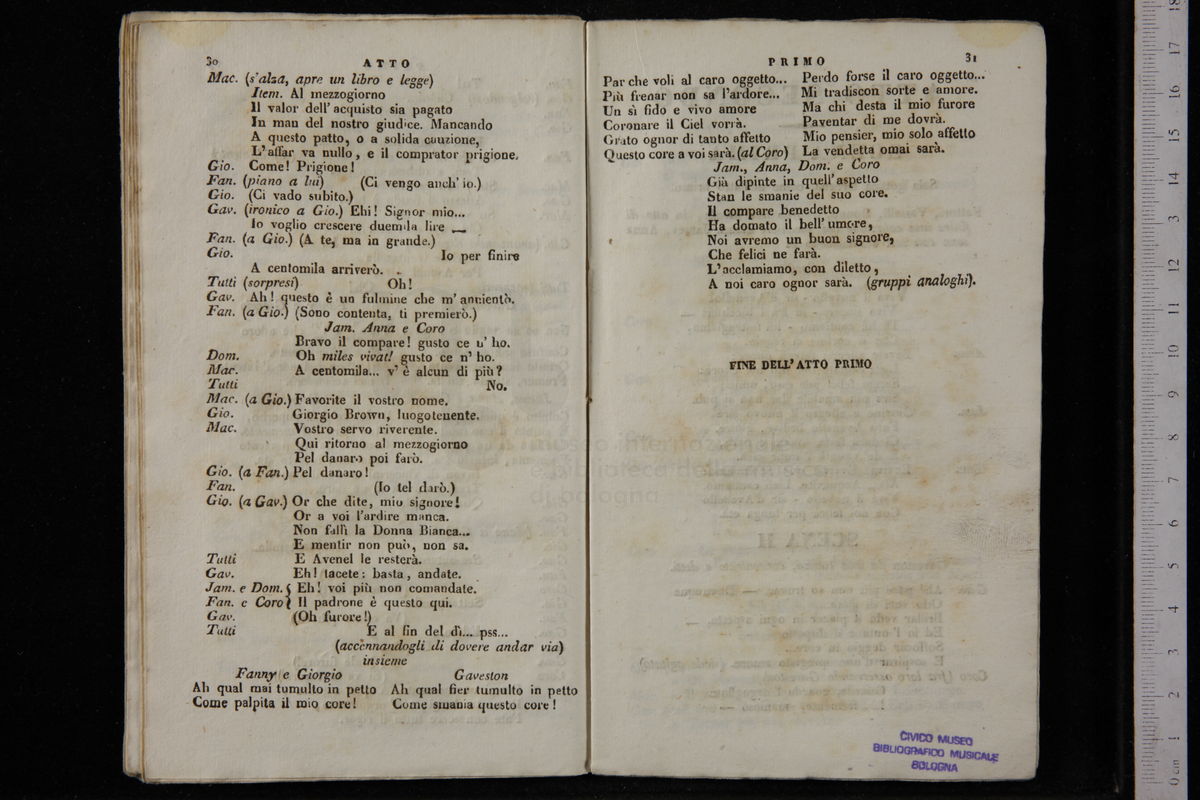 30
ATTO
Mac. (s'alza, apre un libro e legge)
Item. Al mezzogiorno
Il valor dell'acquisto sia pagato
In man del nostro giudice. Mancando
A questo patto, o a solida cauzione,
L'affar va nullo, e il comprator prigione.
Gio. Come! Prigione!
Fan. (piano a lui) (Ci vengo anch'io.)
Gio. (Ci vado subito.)
Gav. (ironico a Gio.) Ehi! Signor mio...
Io voglio crescere duemila lire —
Fan. (a Gio.) (A te, ma in grande.)
Gio. Io per finire
A centomila arriverò.
Tutti (sorpresi) Oh!
Gav. Ah! questo è un fulmine che m'annientò.
Fan. (a Gio.) (Sono contenta, ti premierò.)
Jam. Anna e Coro
Bravo il compare! gusto ce n'ho.
Dom. Oh miles vivat! gusto ce n'ho.
Mac. A centomila... v'è alcun di più?
Tutti No.
Mac. (a Gio.) Favorite il vostro nome.
Gio. Giorgio Brown, luogotenente.
Mac. Vostro servo riverente.
Qui ritorno al mezzogiorno
Pel danaro poi farò.
Gio. (a Fan.) Pel danaro!
Fan. (Io tel darò.)
Gio. (a Gav.) Or che dite, mio signore!
Or a voi l'ardire manca.
Non fallì la Donna Bianca...
E mentir non può, non sa.
Tutti E Avenel le resterà.
Gav. Eh! tacete: basta, andate.
Jam. e Dom. { Eh! voi più non comandate.
Fan. e Coro { Il padrone è questo qui.
Gav. (Oh furore!)
Tutti E al fin del dì... pss...
(accennandogli di dovere andar via)
insieme
Fanny e Giorgio
Ah qual mai tumulto in petto
Come palpita il mio core!
Gaveston
Ah qual fier tumulto in petto
Come smania questo core!
PRIMO
31
Par che voli al caro oggetto...
Più frenar non sa l'ardore...
Un sì fido e vivo amore
Coronare il Ciel vorrà.
Grato ognor di tanto affetto
Questo core a voi sarà. (al Coro)
Perdo forse il caro oggetto...
Mi tradiscon sorte e amore.
Ma chi desta il mio furore
Paventar di me dovrà.
Mio pensier, mio solo affetto
La vendetta omai sarà.
Jam., Anna, Dom. e Coro
Già dipinte in quell'aspetto
Stan le smanie del suo core.
Il compare benedetto
Ha domato il bell'umore,
Noi avremo un buon signore,
Che felici ne farà.
L'acclamiamo, con diletto,
A noi caro ognor sarà. (gruppi analoghi).
FINE DELL'ATTO PRIMO
museo internazionale
e biblioteca della musica
di bologna
CIVICO MUSEO
BIBLIOGRAFICO MUSICALE
BOLOGNA
0 cm 1 2 3 4 5 6 7 8 9 10 11 12 13 14 15 16 17 18